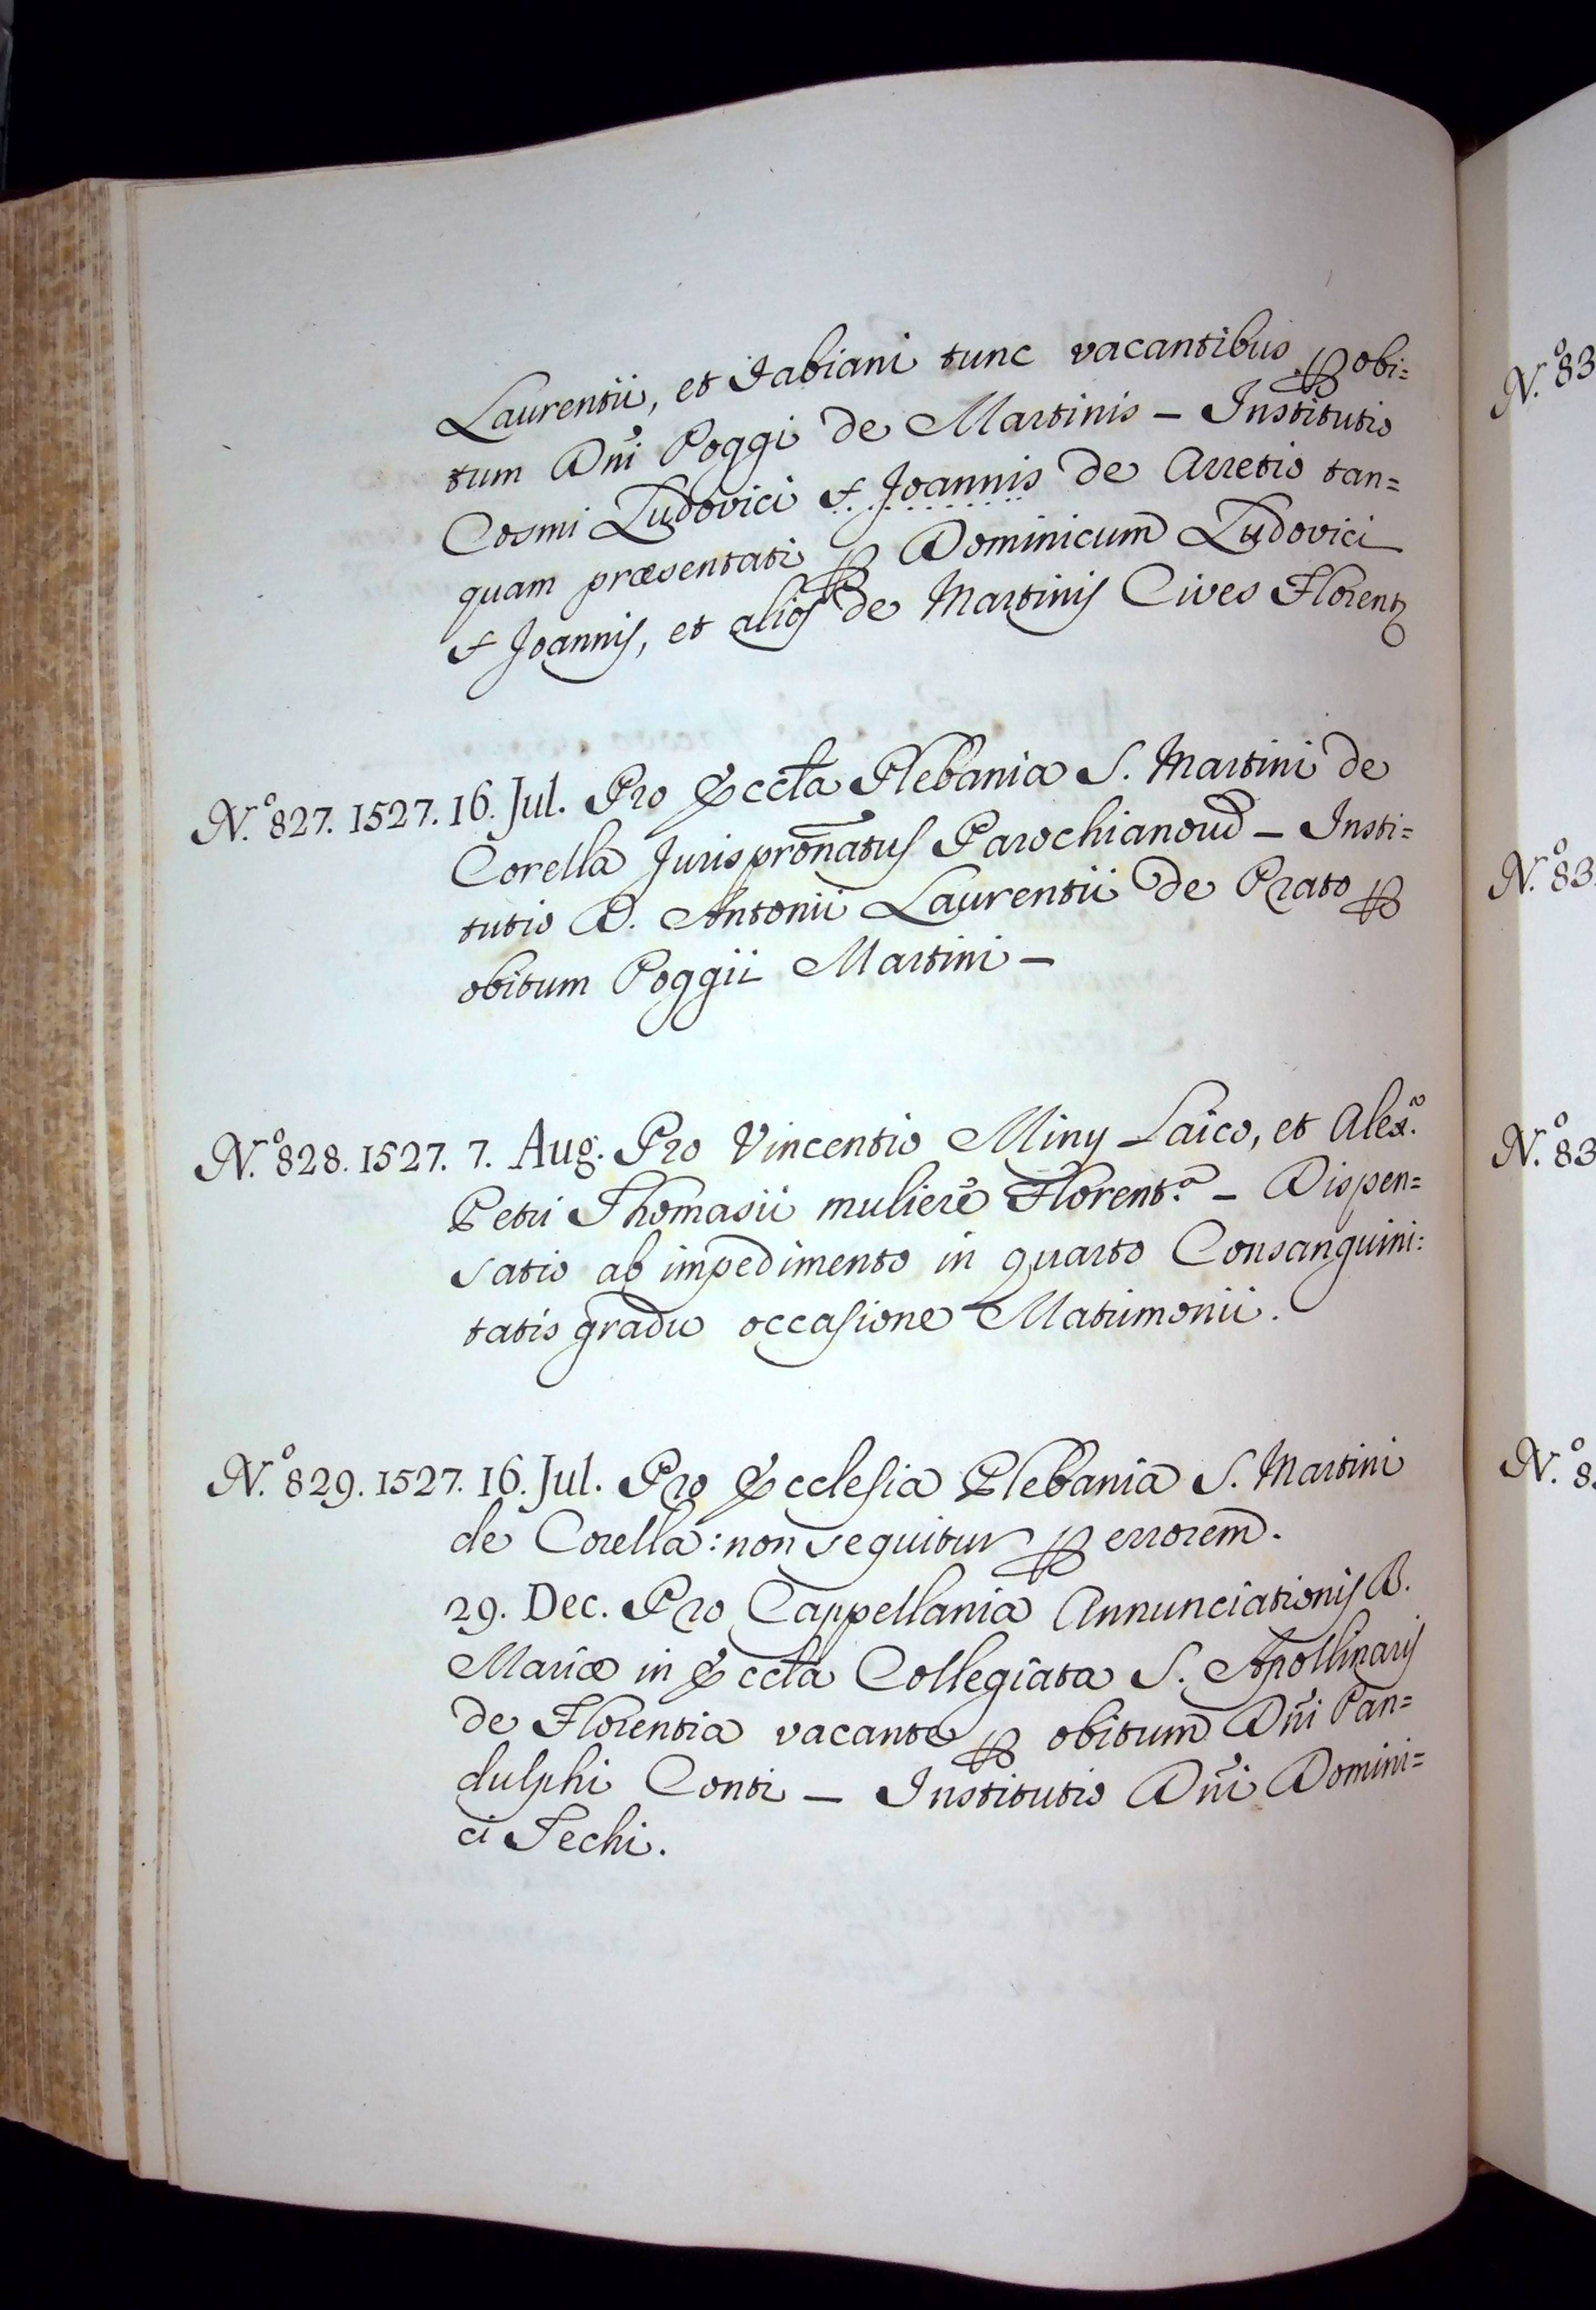 Laurentii, et Fabiani tunc vacantibus ꝑ obi=
tum Dñi Poggi de Martinis – Institutio
Cosmi Ludovici f. Joannis de Arretio tan=
quam præsentati ꝑ Dominicum Ludovici
f. Joannis, et alios de Martinis Cives Florent
N.º 827. 1527. 16. Jul. Pro Eccła Plebania S. Martini de
Corella Jurisproñatus Parochianoru – Insti=
tutio D. Antonii Laurentii de Prato ꝑ
obitum Poggii Martini –
N.º 828. 1527. 7. Aug. Pro Vincentio Miny Laico, et Alex.ª
Petri Thomasii muliere Florent.ª – Dispen=
satio ab impedimento in quarto Consanguini:
tatis gradu occasione Matrimonii.
N.º 829. 1527. 16. Jul. Pro Ecclesia Plebania S. Martini
de Corella: non sequitur ꝑ errorem.
29. Dec. Pro Cappellania Annunciationis B.
Mariæ in Eccła Collegiata S. Apollinaris
de Florentia vacante ꝑ obitum Dñi Pan=
dulphi Conti – Institutio Dñi Domini=
ci Fechi.
N.º 83
N.º 83
N.º 83
N.º 8